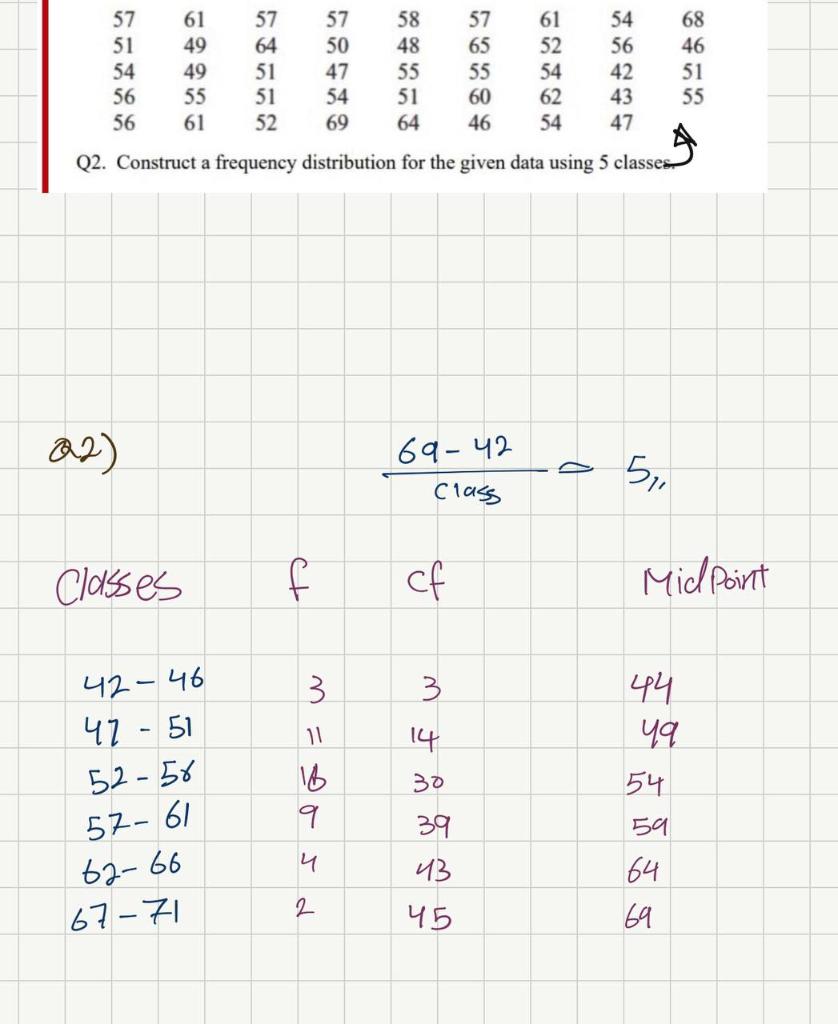 57 61 57 57 58 57 61 54 68
51 49 64 50 48 65 52 56 46
54 49 51 47 55 55 54 42 51
56 55 51 54 51 60 62 43 55
56 61 52 69 64 46 54 47
Q2. Construct a frequency distribution for the given data using 5 classes.
Q2)
69-42
Class = 5,,
Classes f cf MidPoint
42-46 3 3 44
47-51 11 14 49
52-56 16 30 54
57-61 9 39 59
62-66 4 43 64
67-71 2 45 69